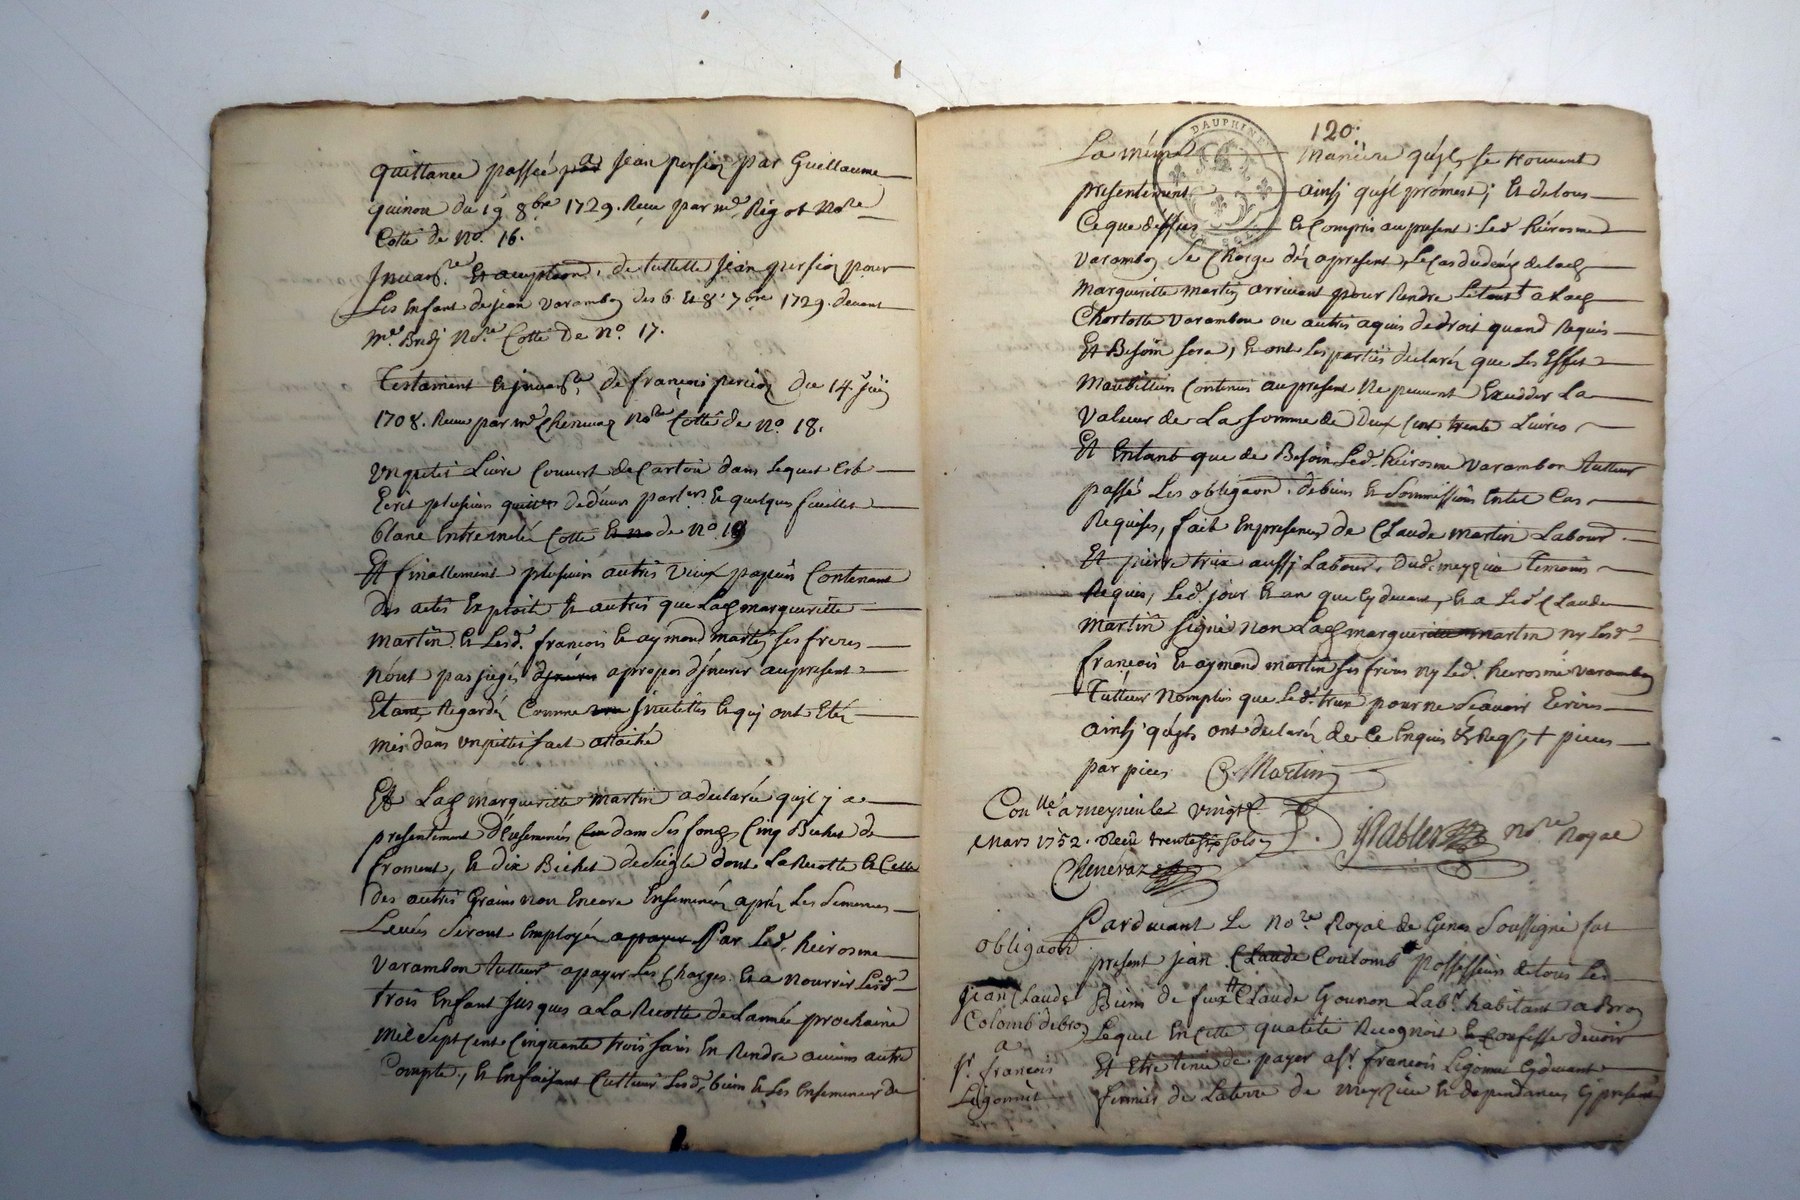 quittance passée a Jean persion par Guillaume
quinon du 19 8bre 1729. Receu par me Rigot Nore
Cotté de No. 16.
de tuttelle Jean persion pour
Les Enfant de jean Varambon des 6. Et 8. 7bre 1729. devant
me. Nore. Cotté De No 17.
Testament de françois persion du 14 Juin
1708. Receu par me Cheneraz Nore Cotté de No. 18.
Un petit Livre Couvert de Carton dans lequel Est
Ecrit plusieurs de divers et quelques feuillet
blanc Entremelé Cotté de No. 19
Et finallement plusieurs autres vieux papiers Contenant
des actes Exploits Et autres que Lad margueritte
martin Et Lesd. françois Et aymond martin ses freres
n'ont pas jugés apropos d'jnserer au present
Etant Regardés Comme jnutilles Et qui ont Eté
mis dans un petit sact attaché
Et Lad marguerite martin a declarée quil y a
presentement d'Ensemencés dans ses fonds Cinq Bichet de
froment, Et dix Bichet de seigle dont La Recolte Et Celle
des autres Grains non Encore Ensemencés aprés Les semences
Levées seront Employés Par Led. heirosme
Varambon tutteur a payer Les Charges Et a nourrir Lesd.
trois Enfant jusques a La Recolte de L'année prochaine
mil sept Cent Cinquante trois sans En Rendre aucuns autre
Compte, Et En faisant Cultiver Lesd. biens Et Les Ensemencer de
120.
DAUPHINE
La même maniere quils se trouvent
presentement ainsi quil promest; Et de tous
Ce que dessus Et Compris au present Led. heirosme
Varambon se Charge déz apresent, Le Cas du decés de Lad
Marguerite Martin arrivant pour Rendre Le tout a Lad
Charlotte Varambon ou autres de droit quand Requis
Et Besoin sera, Et ont Les parties declarés que Les Effet
Mobilliers Contenus au present Ne peuvent Exceder La
Valeur de La somme de Deux Cent trente Livres
Et Entant que de Besoin Led. heirosme Varambon tutteur
passé Les obligaons. de biens Et sommissions En tel Cas
Requises, fait En presence de Claude martin Labour.
Et pierre trux aussi Labour. dud. meyzieu temoins
Requis, Led. jour Et an que Cy devant, Et a Led. Claude
martin signé non Lad marguerite martin ny Lesd
françois Et aymond martin ses freres ny Led. heirosme Varambon
Tutteur Nomplus que Led. trux pour ne sçavoir Ecrire
ainsi quils ont declarés de Ce Enquis Et Reqs, + pieces
par pieces C. Martin
Conllé a meyzieu le vingt
Mars 1752. Receu trente sols
Cheneraz
Rabler Nore Royal
obligaon
Jean Claude
Colomb de bron
a
sr. françois
Ligonnet
Pardevant Le Nore Royal de Genas Soussigné fut
present jean Claude Coulomb possesseur de tous Les
Biens de feux Claude Gounon Labr. habitant a Bron
Lequel En Cette qualité Recognoit Et Confesse devoir
Et Etre tenu de payer a sr. françois Ligonnet Cydevant
fermier de La terre de Meyzieu Et dependances Cy present